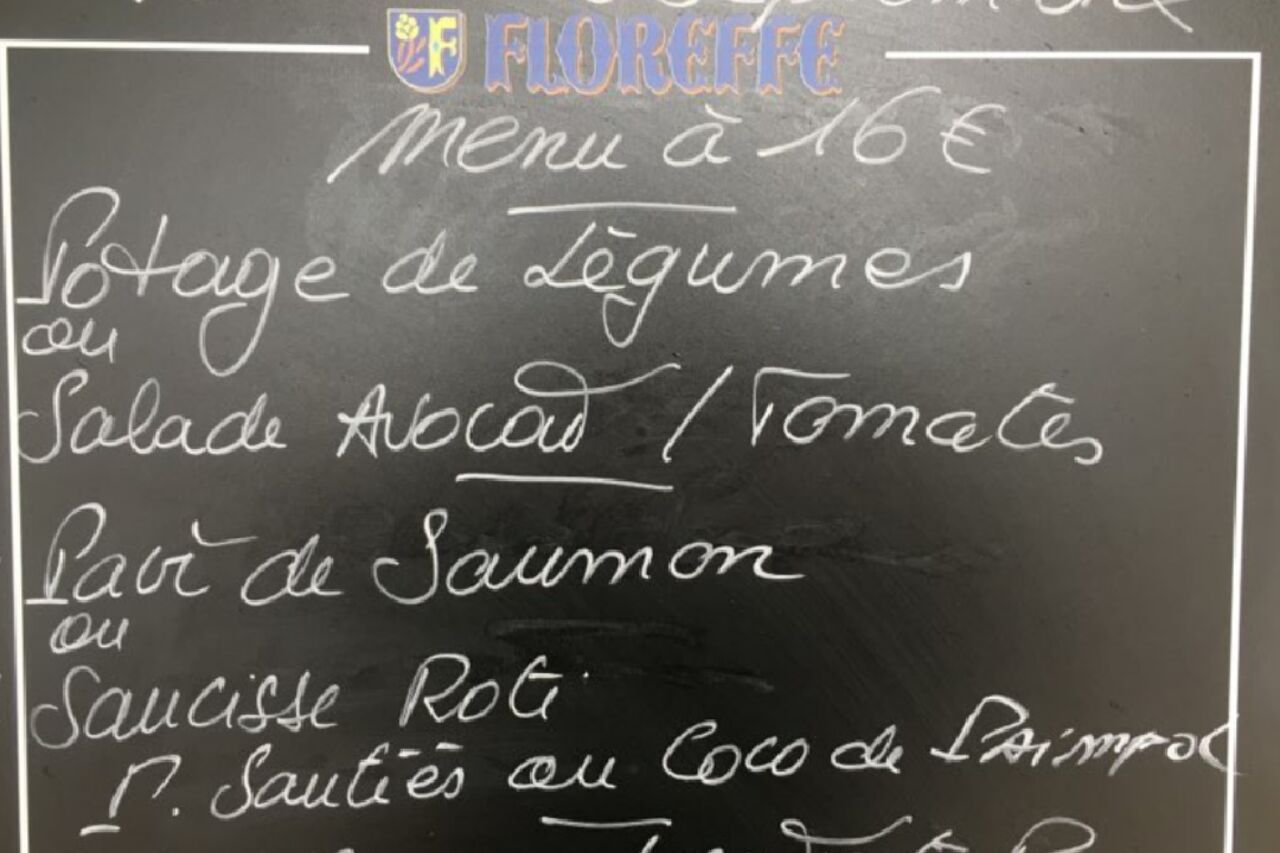 FLOREFFE
Menu à 16 €
Potage de Légumes
ou
Salade Avocat / Tomates
Pavé de Saumon
ou
Saucisse Roti
P. Sautiés ou Coco de Paimpol